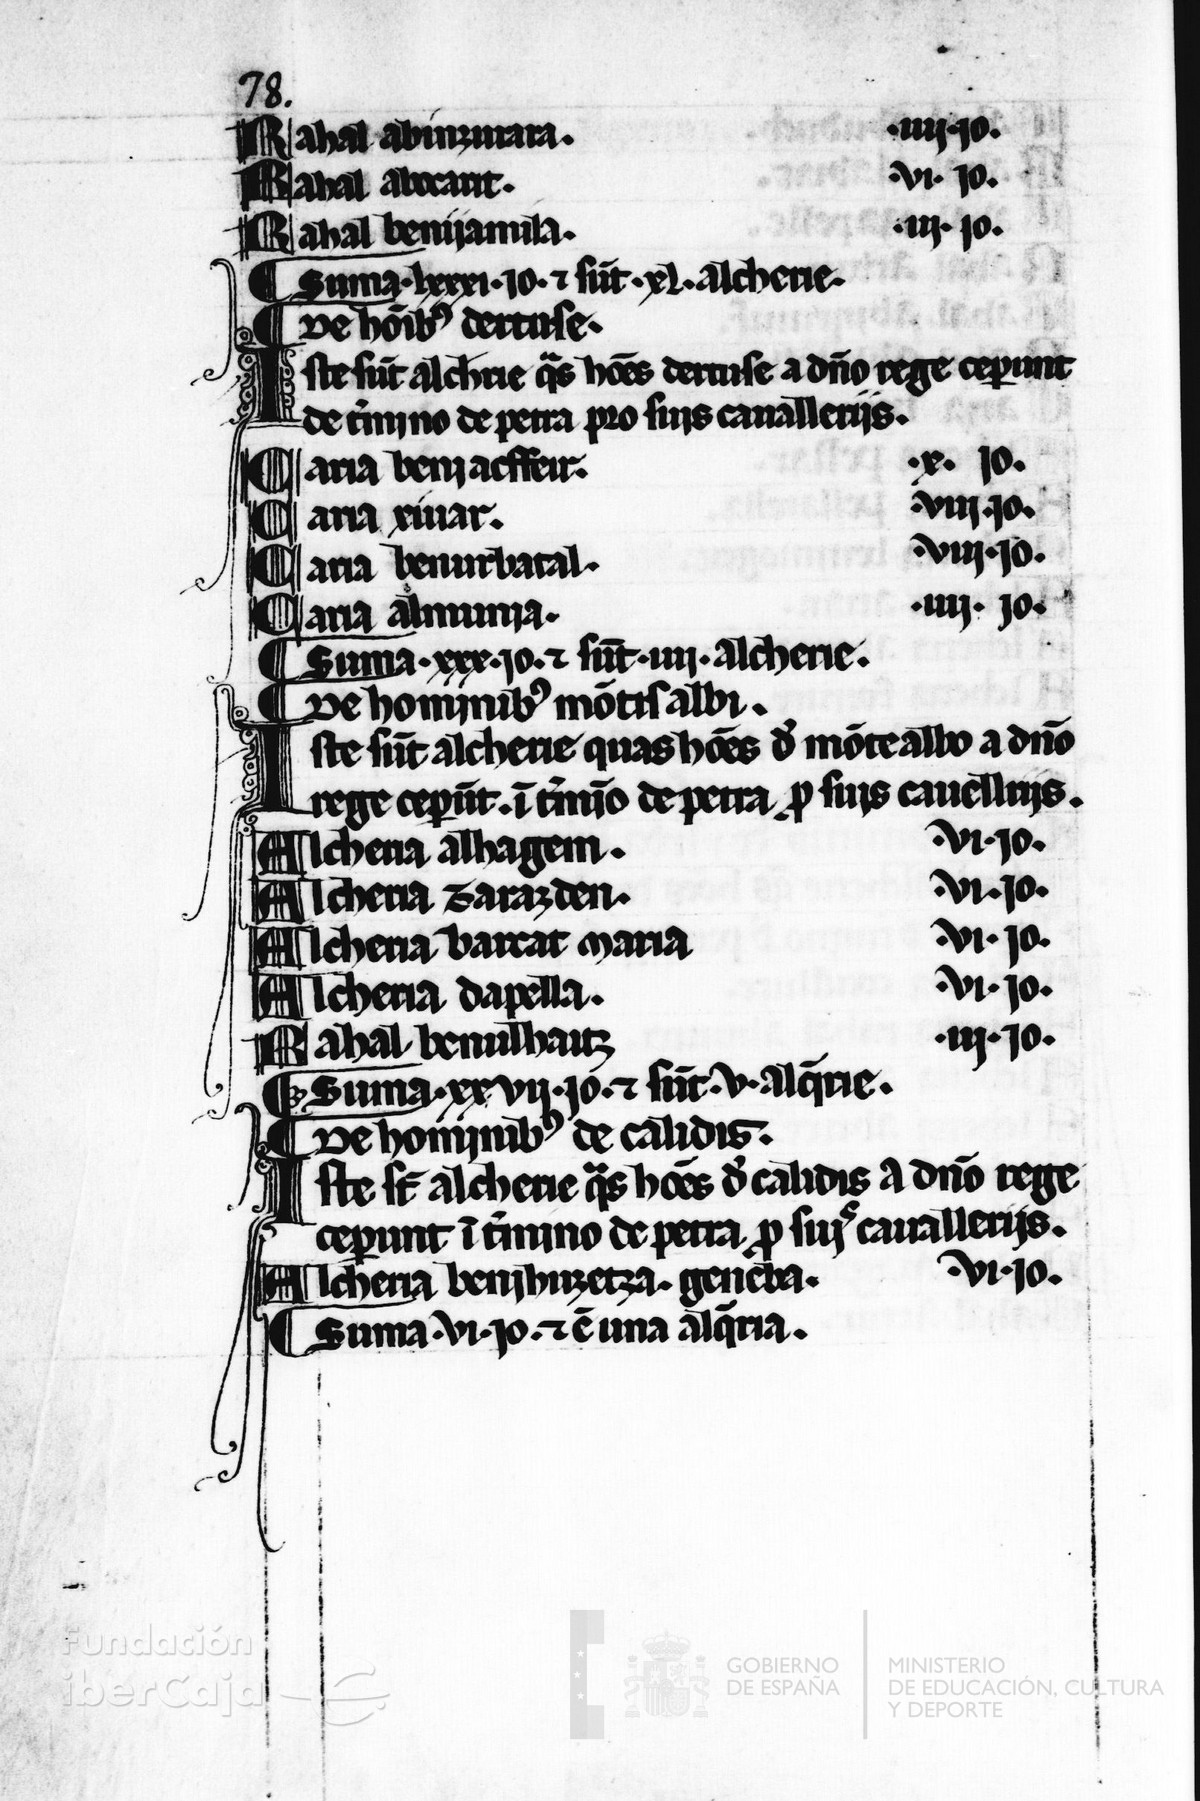 78.
Rahal abinzmara. .iiij. jo.
Rahal abocarit. .vi. jo.
Rahal benijamila. .iij. jo.
Suma. lxxxi. jo. ⁊ sūt. xl. alcherie.
De hōib⁹ dertuse.
Iste sūt alchrie q̄s hōēs dertuse a dn̄o rege ceperunt
de t̄mino de petra pro suis cauallerijs.
Caria beni acffeir. .x. jo.
Caria xiuar. .viii. jo.
Caria benurbatal. .viii. jo.
Caria almunia. .iiij. jo.
Suma. xxx. jo. ⁊ sūt. iiij. alcherie.
De hominib⁹ mōtis albi.
Iste sūt alcherie quas hōēs d̓ mōte albo a dn̄o
rege ceper̄ut. ī t̄mīo de petra, ꝑ suis cauellrijs.
Alcheria alhagem. .vi. jo.
Alcheria zarazden. .vi. jo.
Alcheria barcat maria .vi. jo.
Alcheria dapella. .vi. jo.
Rahal benulhaitz .iij. jo.
Suma. xxvij. jo. ⁊ sūt. v. alq̄rie.
De hominib⁹ de calidis.
Iste st̄ alcherie q̄s hōēs d̓ calidis a dn̄o rege
ceperunt ī t̄mino de petra ꝑ suis cauallerijs.
Alcheria benihuzetza. geneba. .vi. jo.
Suma. vi. jo. ⁊ ē una alq̄ria.
Fundación
iberCaja
GOBIERNO
DE ESPAÑA
MINISTERIO
DE EDUCACIÓN, CULTURA
Y DEPORTE